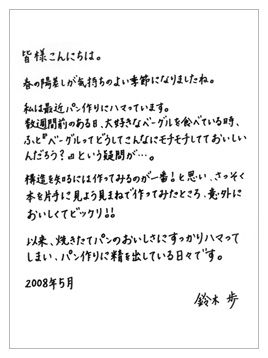 皆様こんにちは。
春の陽差しが気持ちのよい季節になりましたね。
私は最近パン作りにハマっています。
数週間前のある日、大好きなベーグルを食べている時、
ふと『ベーグルってどうしてこんなにモチモチしてておいしい
んだろう?』という疑問が…。
構造を知るには作ってみるのが一番!と思い、さっそく
本を片手に見よう見まねで作ってみたところ、意外に
おいしくてビックリ!!
以来、焼きたてパンのおいしさにすっかりハマって
しまい、パン作りに精を出している日々です。
2008年5月
鈴木 歩